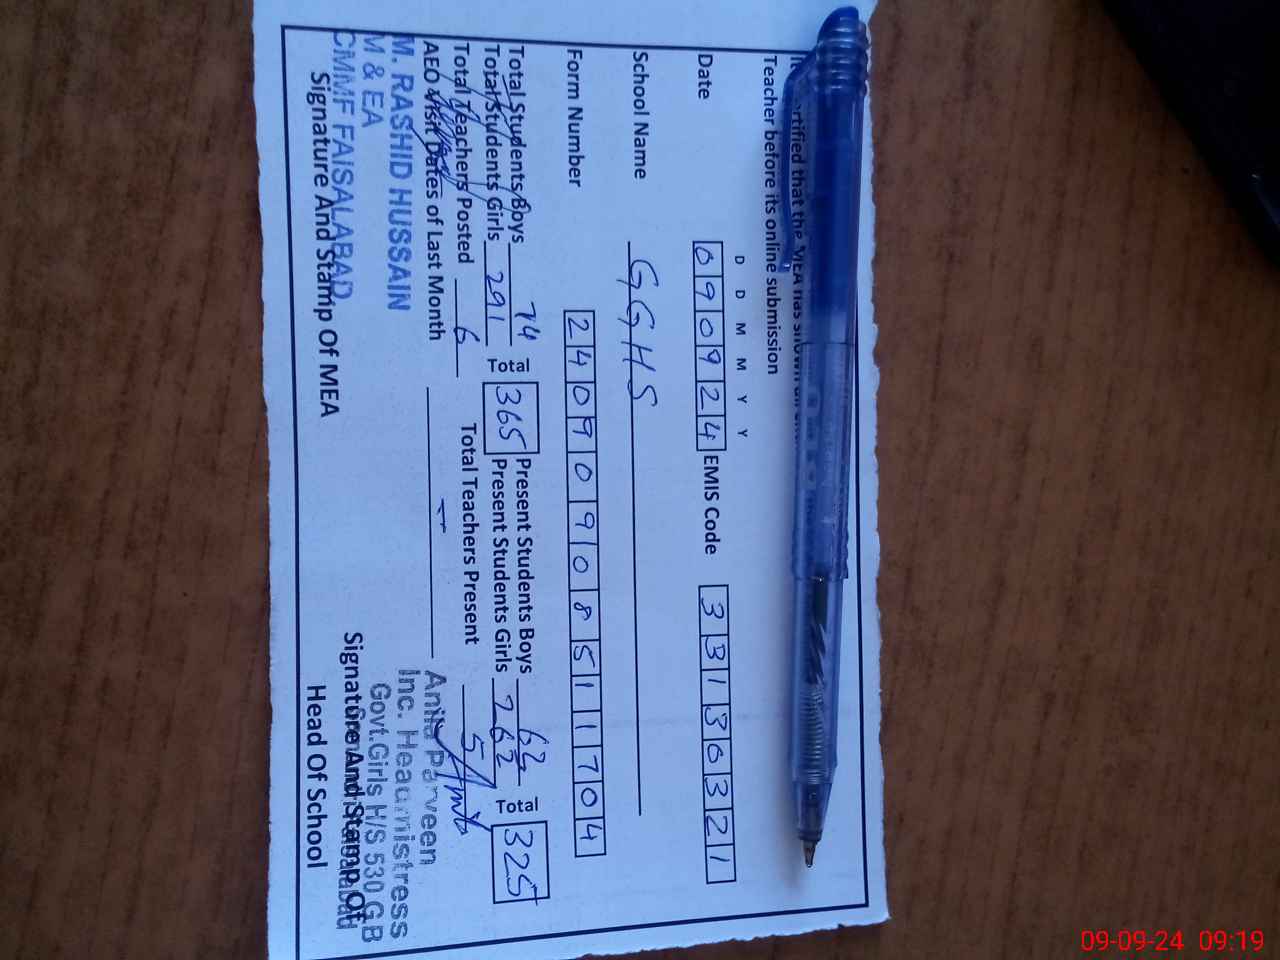 certified that the MEA has shown all
Teacher before its online submission
D D M M Y Y
Date 0 9 0 9 2 4 EMIS Code 3 3 1 3 0 3 2 1
School Name GGHS
Form Number 2 4 0 9 0 9 0 8 5 1 1 7 0 4
Total Students Boys 74 Total 365 Present Students Boys 62 Total 325
Total Students Girls 291 Present Students Girls 262
Total Teachers Posted 6 Total Teachers Present 5
AEO Visit Dates of Last Month
M. RASHID HUSSAIN
M & EA
CMMF FAISALABAD
Signature And Stamp Of MEA
Anila Parveen
Inc. Headmistress
Govt.Girls H/S 530 G B
Signature And Stamp Of
Head Of School
09-09-24 09:19